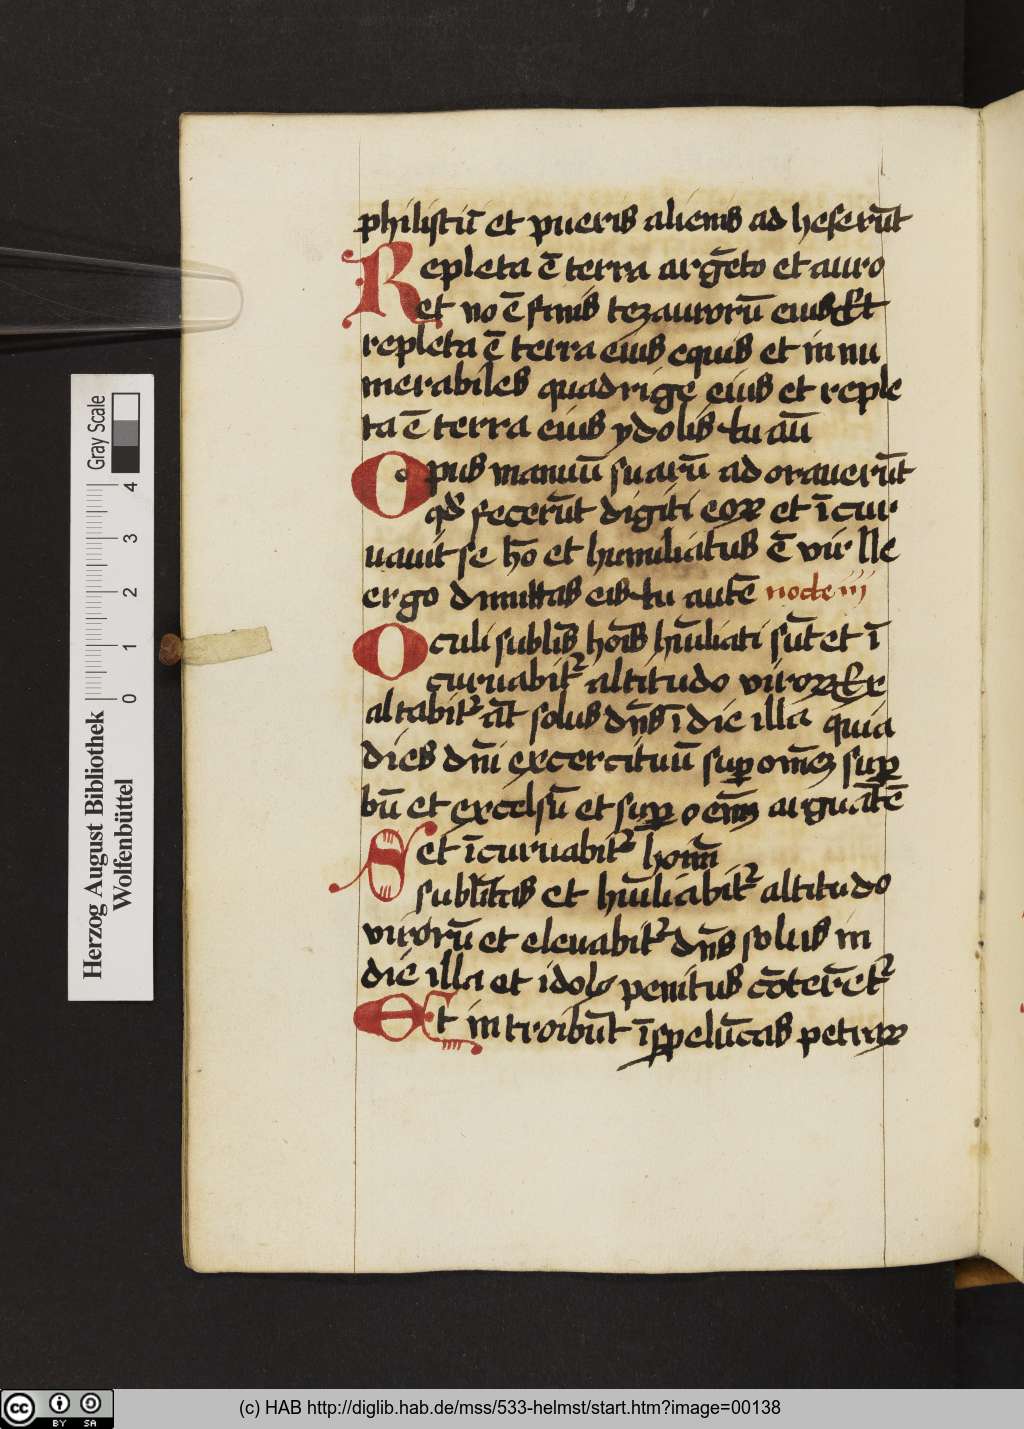 philistiī et pueris alienis ad heserūt
Repleta ē terra argēto et auro
et no ē finis tezaurorū eius Et
repleta ē terra eius equis et in nu
merabiles quadrige eius et reple
ta ē terra eius ydolis tu aū
Opus manuū suarū ad orauerūt
qd fecerūt digiti eoꝝ et īcur
uauit se hō et humiliatus ē vir Ne
ergo dimittas eis tu autē nocte iiij
Oculi sublīs hoīs hūiliati sūt et ī
curuabitᷣ altitudo viroꝝ Ex
altabitᷣ āt solus dn̄s ī die illa quia
dies dn̄i excercituū suꝑ omēꝫ suꝑ
bū et excelsū et suꝑ oēm̄ arguātē
Set īcuruabitᷣ hom̄
sublītas et hūiliabitᷣ altitudo
virorū et eleuabitᷣ dn̄s solus in
die illa et idola penitus cōterētᷣ
Et introibūt ī spelūcas petraꝝ
Herzog August Bibliothek
Wolfenbüttel
0 1 2 3 4
Gray Scale
cc BY SA
(c) HAB http://diglib.hab.de/mss/533-helmst/start.htm?image=00138